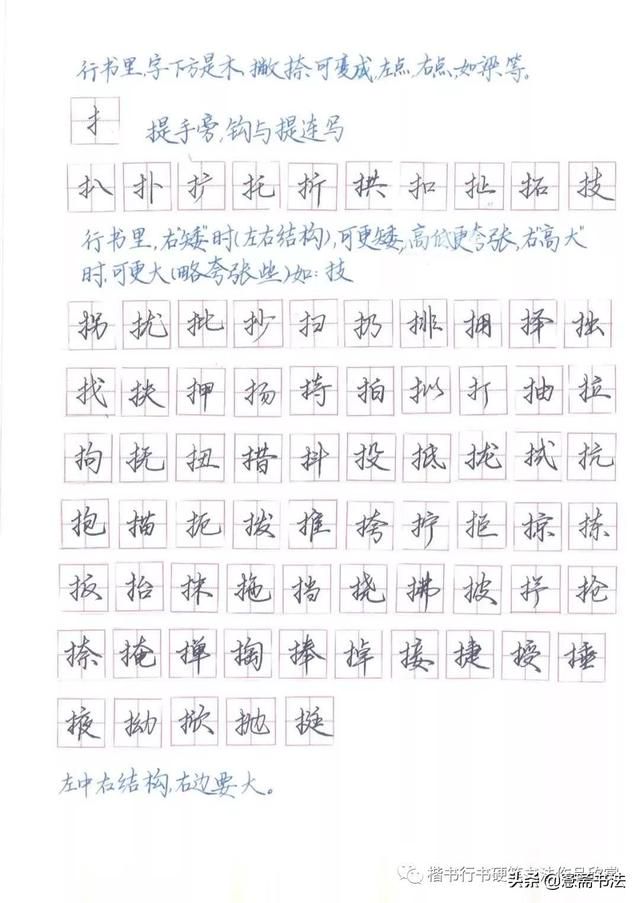 行书里,字下方是木,撇捺可变成,左点,右点,如梁等。
扌
提手旁,钩与提连写
扒 扑 扩 托 折 拱 扣 扯 拓 技
行书里,右"矮"时(左右结构),可更矮,高低更夸张,右"高大"
时,可更大(略夸张些)如:技
拐 扰 批 抄 扫 扔 排 拥 择 拙
找 抉 押 扬 持 拍 拟 打 抽 拉
拘 抚 扭 措 抖 投 抵 拢 拭 抗
抱 描 扼 拨 推 挎 拧 拒 掠 拣
扳 抬 抹 拖 挡 挠 拂 披 抒 抢
捺 掩 掸 掏 捧 掉 接 捷 授 捶
掖 拗 掀 抛 挺
左中右结构,右边要大。
楷书行书硬笔书法作品欣赏
头条 @慧斋书法